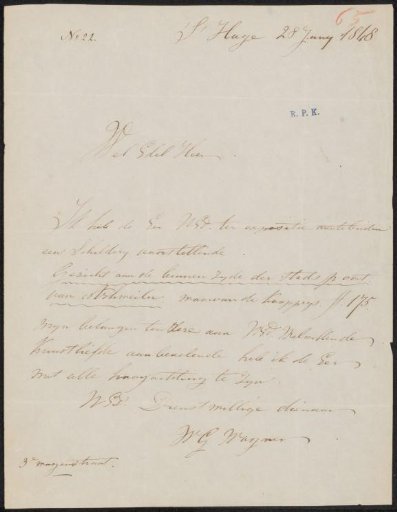 65
No 22.
S' Hage 28 Juny 1868
R. P. K.
Wel Edel Heer
Ik heb de Eer UEd. ter expositie aantebieden
een Schildery voorstellende
Gezicht aan de binnen zyde der Stads poort
van waarvan de kooppys f 175
myn belangen ten deze aan UEd. Welwillende
Kunstliefde aanbevelende heb ik de Eer
met alle hoogachting te zyn
UEd Dienstwillige dienaar
W G Wagner
3e straat.